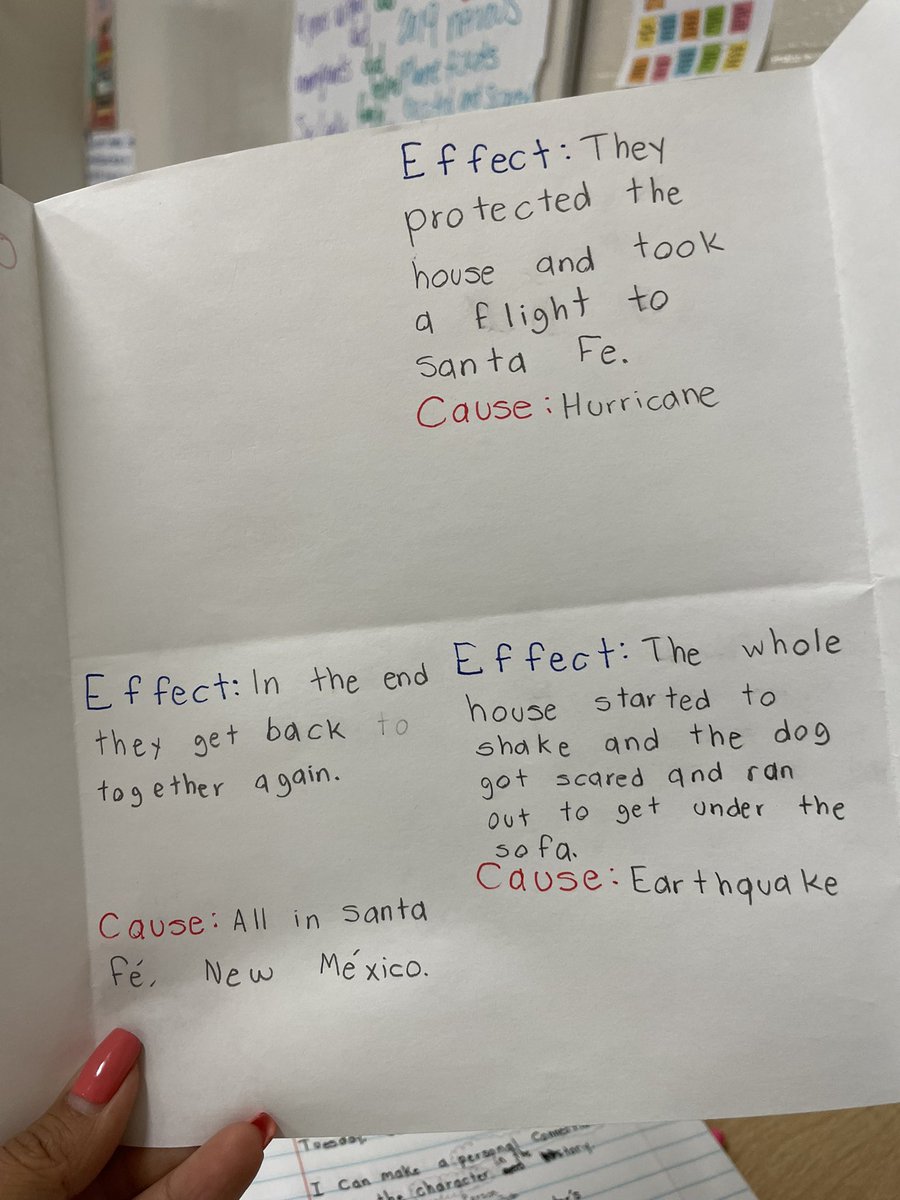 2019 nervous
Effect: They
protected the
house and took
a flight to
Santa Fe.
Cause: Hurricane
Effect: In the end
they get back to
together again.
Cause: All in Santa
Fé, New México.
Effect: The whole
house started to
shake and the dog
got scared and ran
out to get under the
sofa.
Cause: Earthquake
Tuesday
I can make a personal
the character and